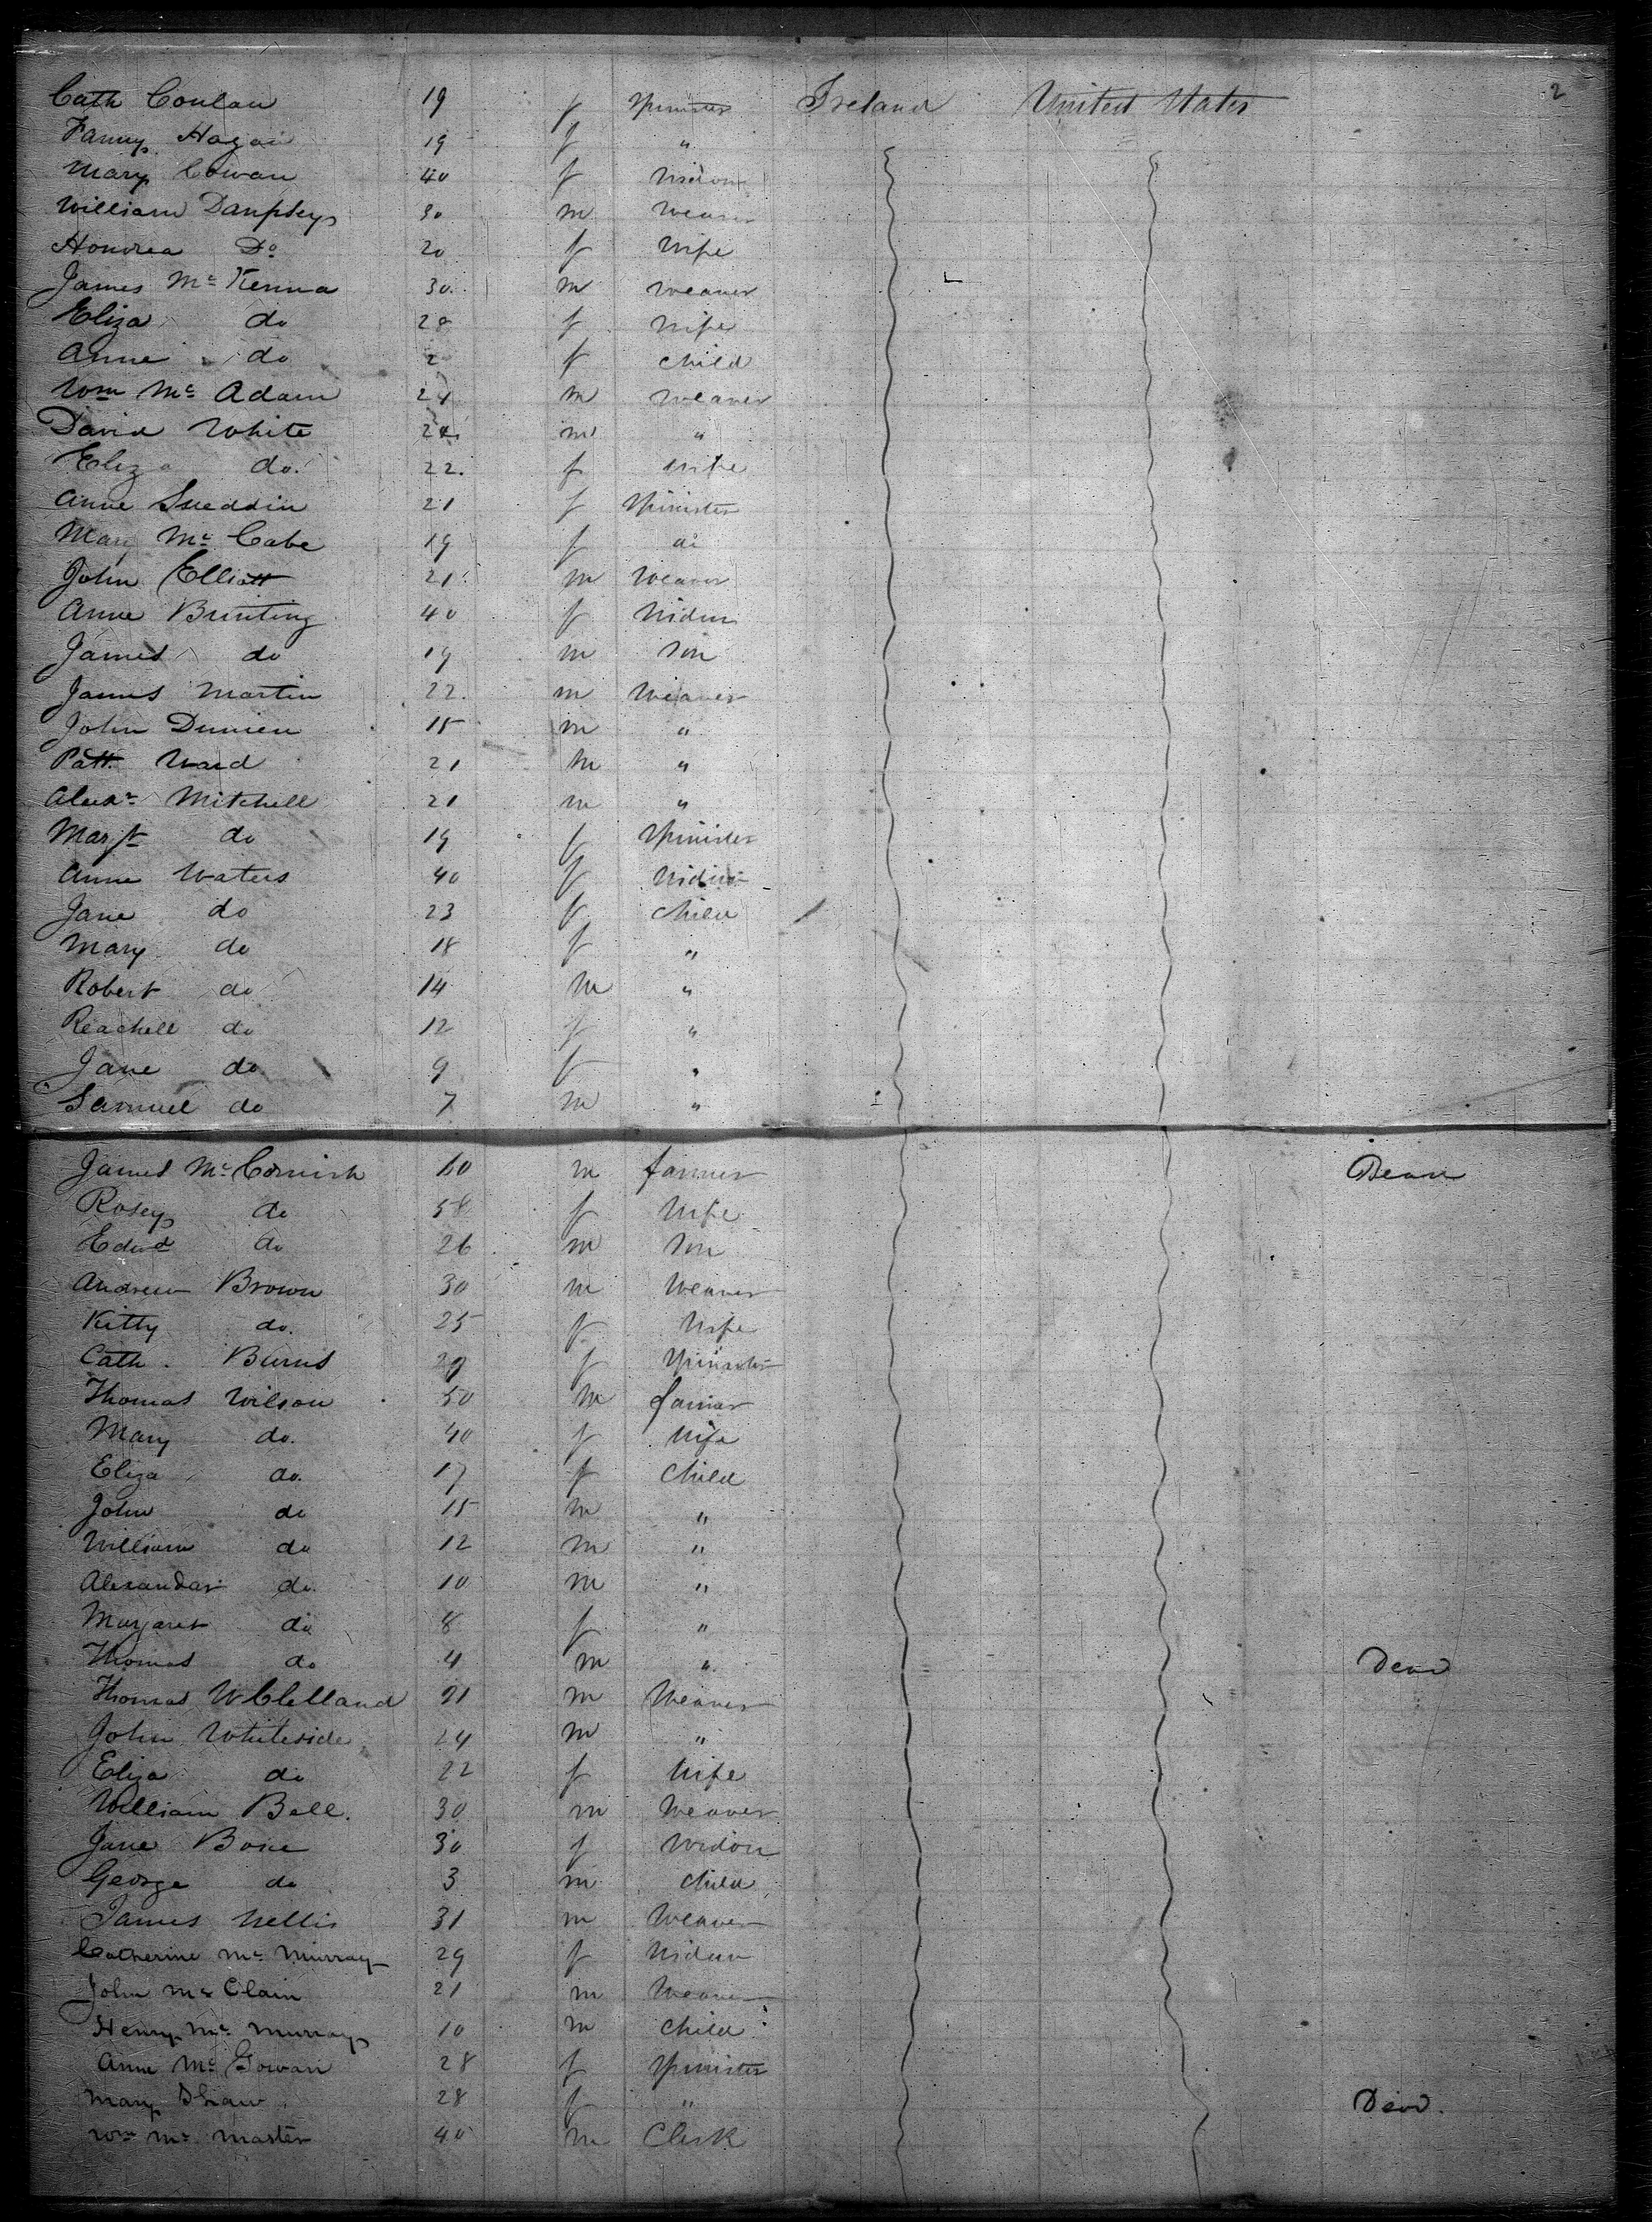 2
Cath Conlan 19 f Spinster Ireland United States
Fanny Hagan 19 f "
Mary Cowan 40 f Widow
William Dampsey 30 m Weaver
Honorea Do 20 f Wife
James Mc Kenna 30 m Weaver
Eliza do 28 f Wife
Anne do 2 f Child
Wm Mc Adam 24 m Weaver
David White 24 m "
Eliza do. 22. f Wife
Anne Sneddin 21 f Spinster
Mary Mc Cabe 19 f do
John Elliott 21 m Weaver
Anne Bunting 40 f Widow
James do 19 m Son
James Martin 22. m Weaver
John 15 m "
Patt. Ward 21 m "
Alexr Mitchell 21 m "
Margt do 19 f Spinster
Anne Waters 40 f Widow
Jane do 23 f Child
Mary do 18 f "
Robert do 14 m "
Reachell do 12 f "
Jane do 9 f "
Samuel do 7 m "
James Mc Cornish 60 m farmer Dead
Rosey do 58 f Wife
Edwd do 26 m Son
Andrew Brown 30 m Weaver
Kitty do. 25 f Wife
Cath. Burns f Spinster
Thomas Wilson 50 m farmer
Mary do. 40 f Wife
Eliza do. 17 f Child
John do 15 m "
William do 12 m "
Alexandar do. 10 m "
Margaret do 8 f "
Thomas do 4 m " Dead
Thomas McClelland 21 m Weaver
John Whiteside 24 m "
Eliza do 22 f Wife
William Bell. 30 m Weaver
Jane Boice 30 f Widow
George do 3 m Child
James Nellis 31 m Weaver
Catherine Mc Murray 29 f Widow
John Mc Clain 21 m Weaver
Henry Mc Murray 10 m Child
Anne Mc Gowan 28 f Spinster
Mary Shaw 28 f " Dead.
Wm Mc Master 40 m Clerk